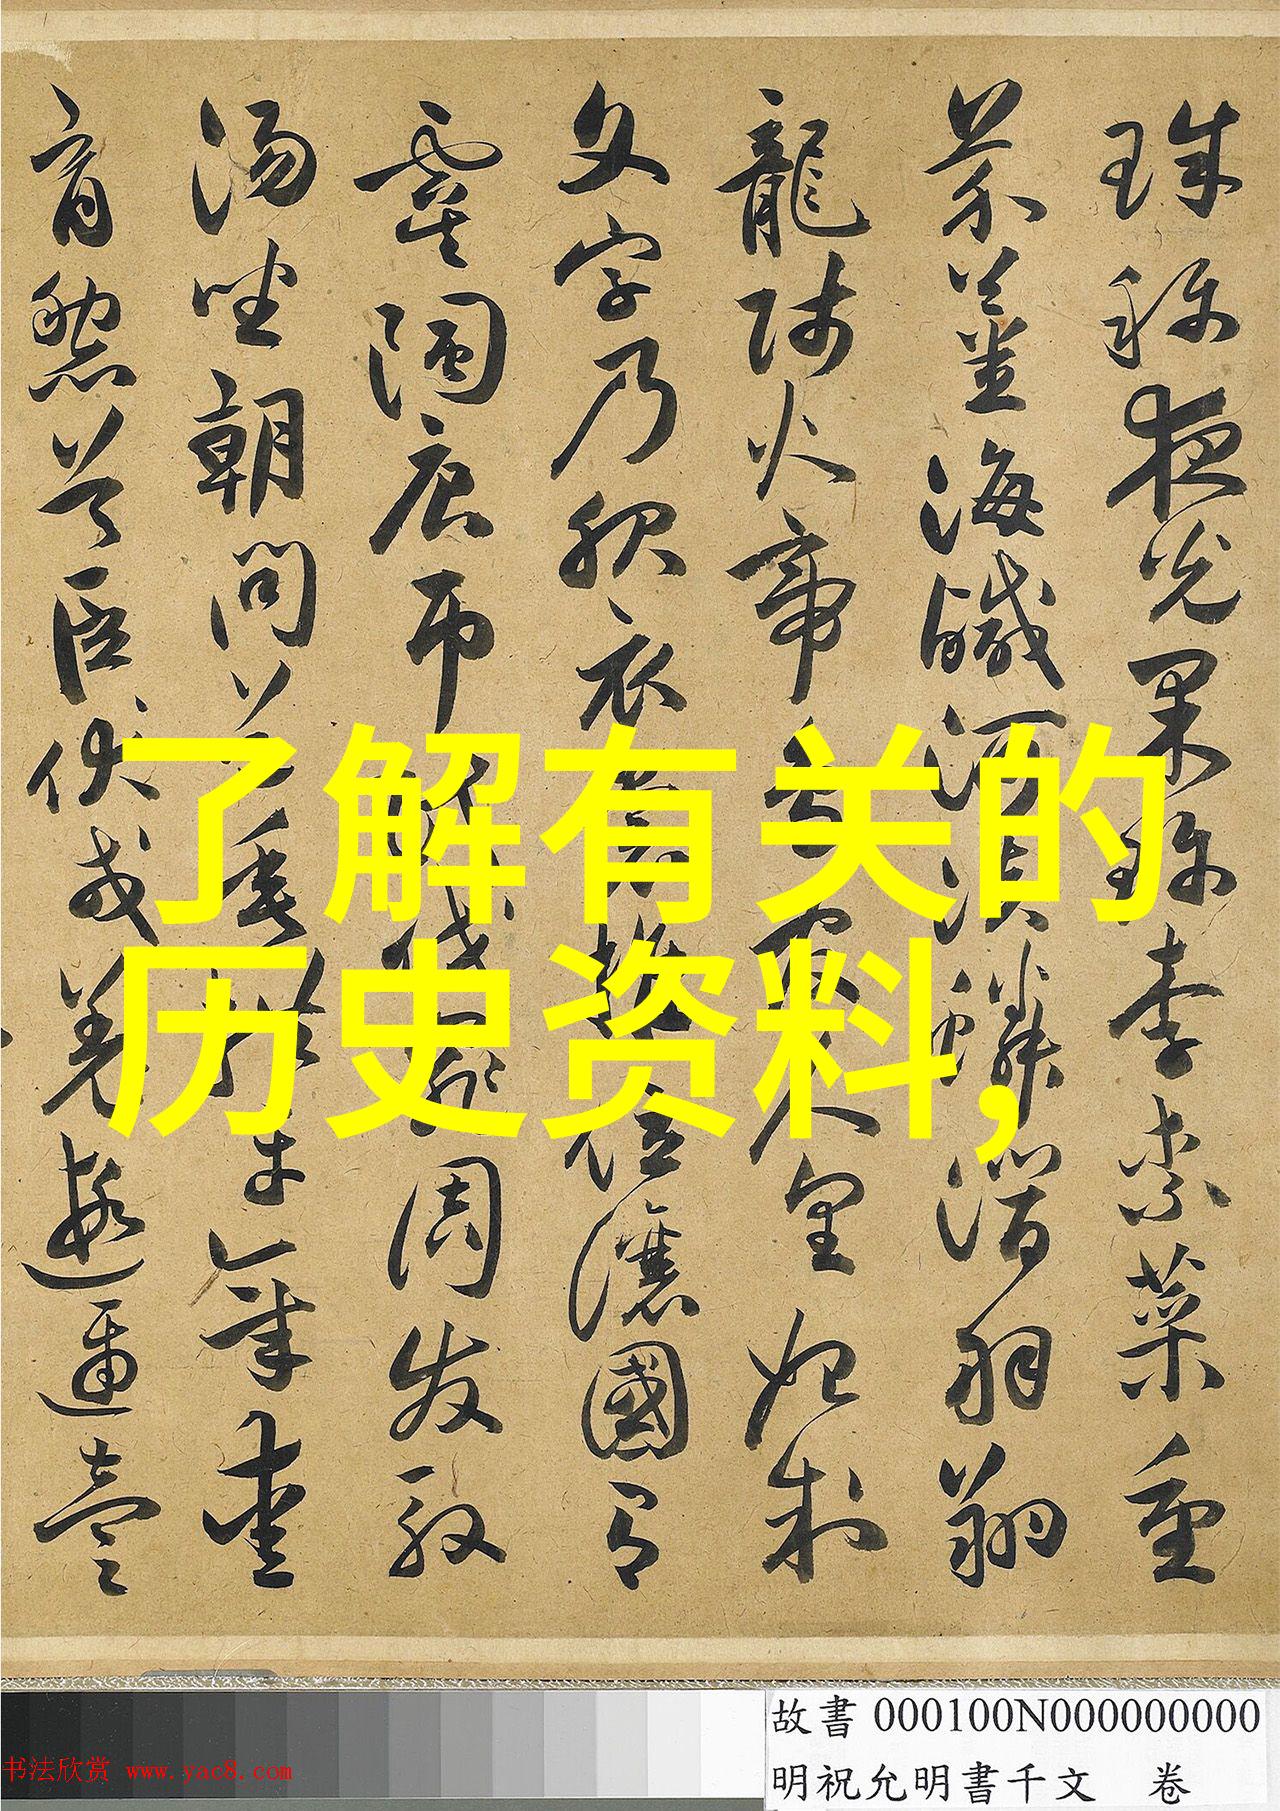 珠稱夜光果珍李柰菜重
芥薑海鹹河淡鱗潛羽翔
龍師火帝鳥官人皇始制
文字乃服衣裳推位讓國有
虞陶唐弔民伐罪周發殷
湯坐朝問道垂拱平章愛
育黎首臣伏戎羌遐邇壹
了解有关的
历史资料,
故書 000100N000000000
明祝允明書千文 卷
书法欣赏 www.yac8.com